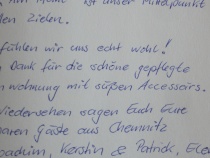 ist unser Mittelpunkt
den Zielen.
fühlen wir uns echt wohl!
Dank für die schöne gepflegte
wohnung mit süßen Accessoirs.
Wiedersehen sagen Euch Eure
Gäste aus Chemnitz
Joachim, Kerstin & Patrick,